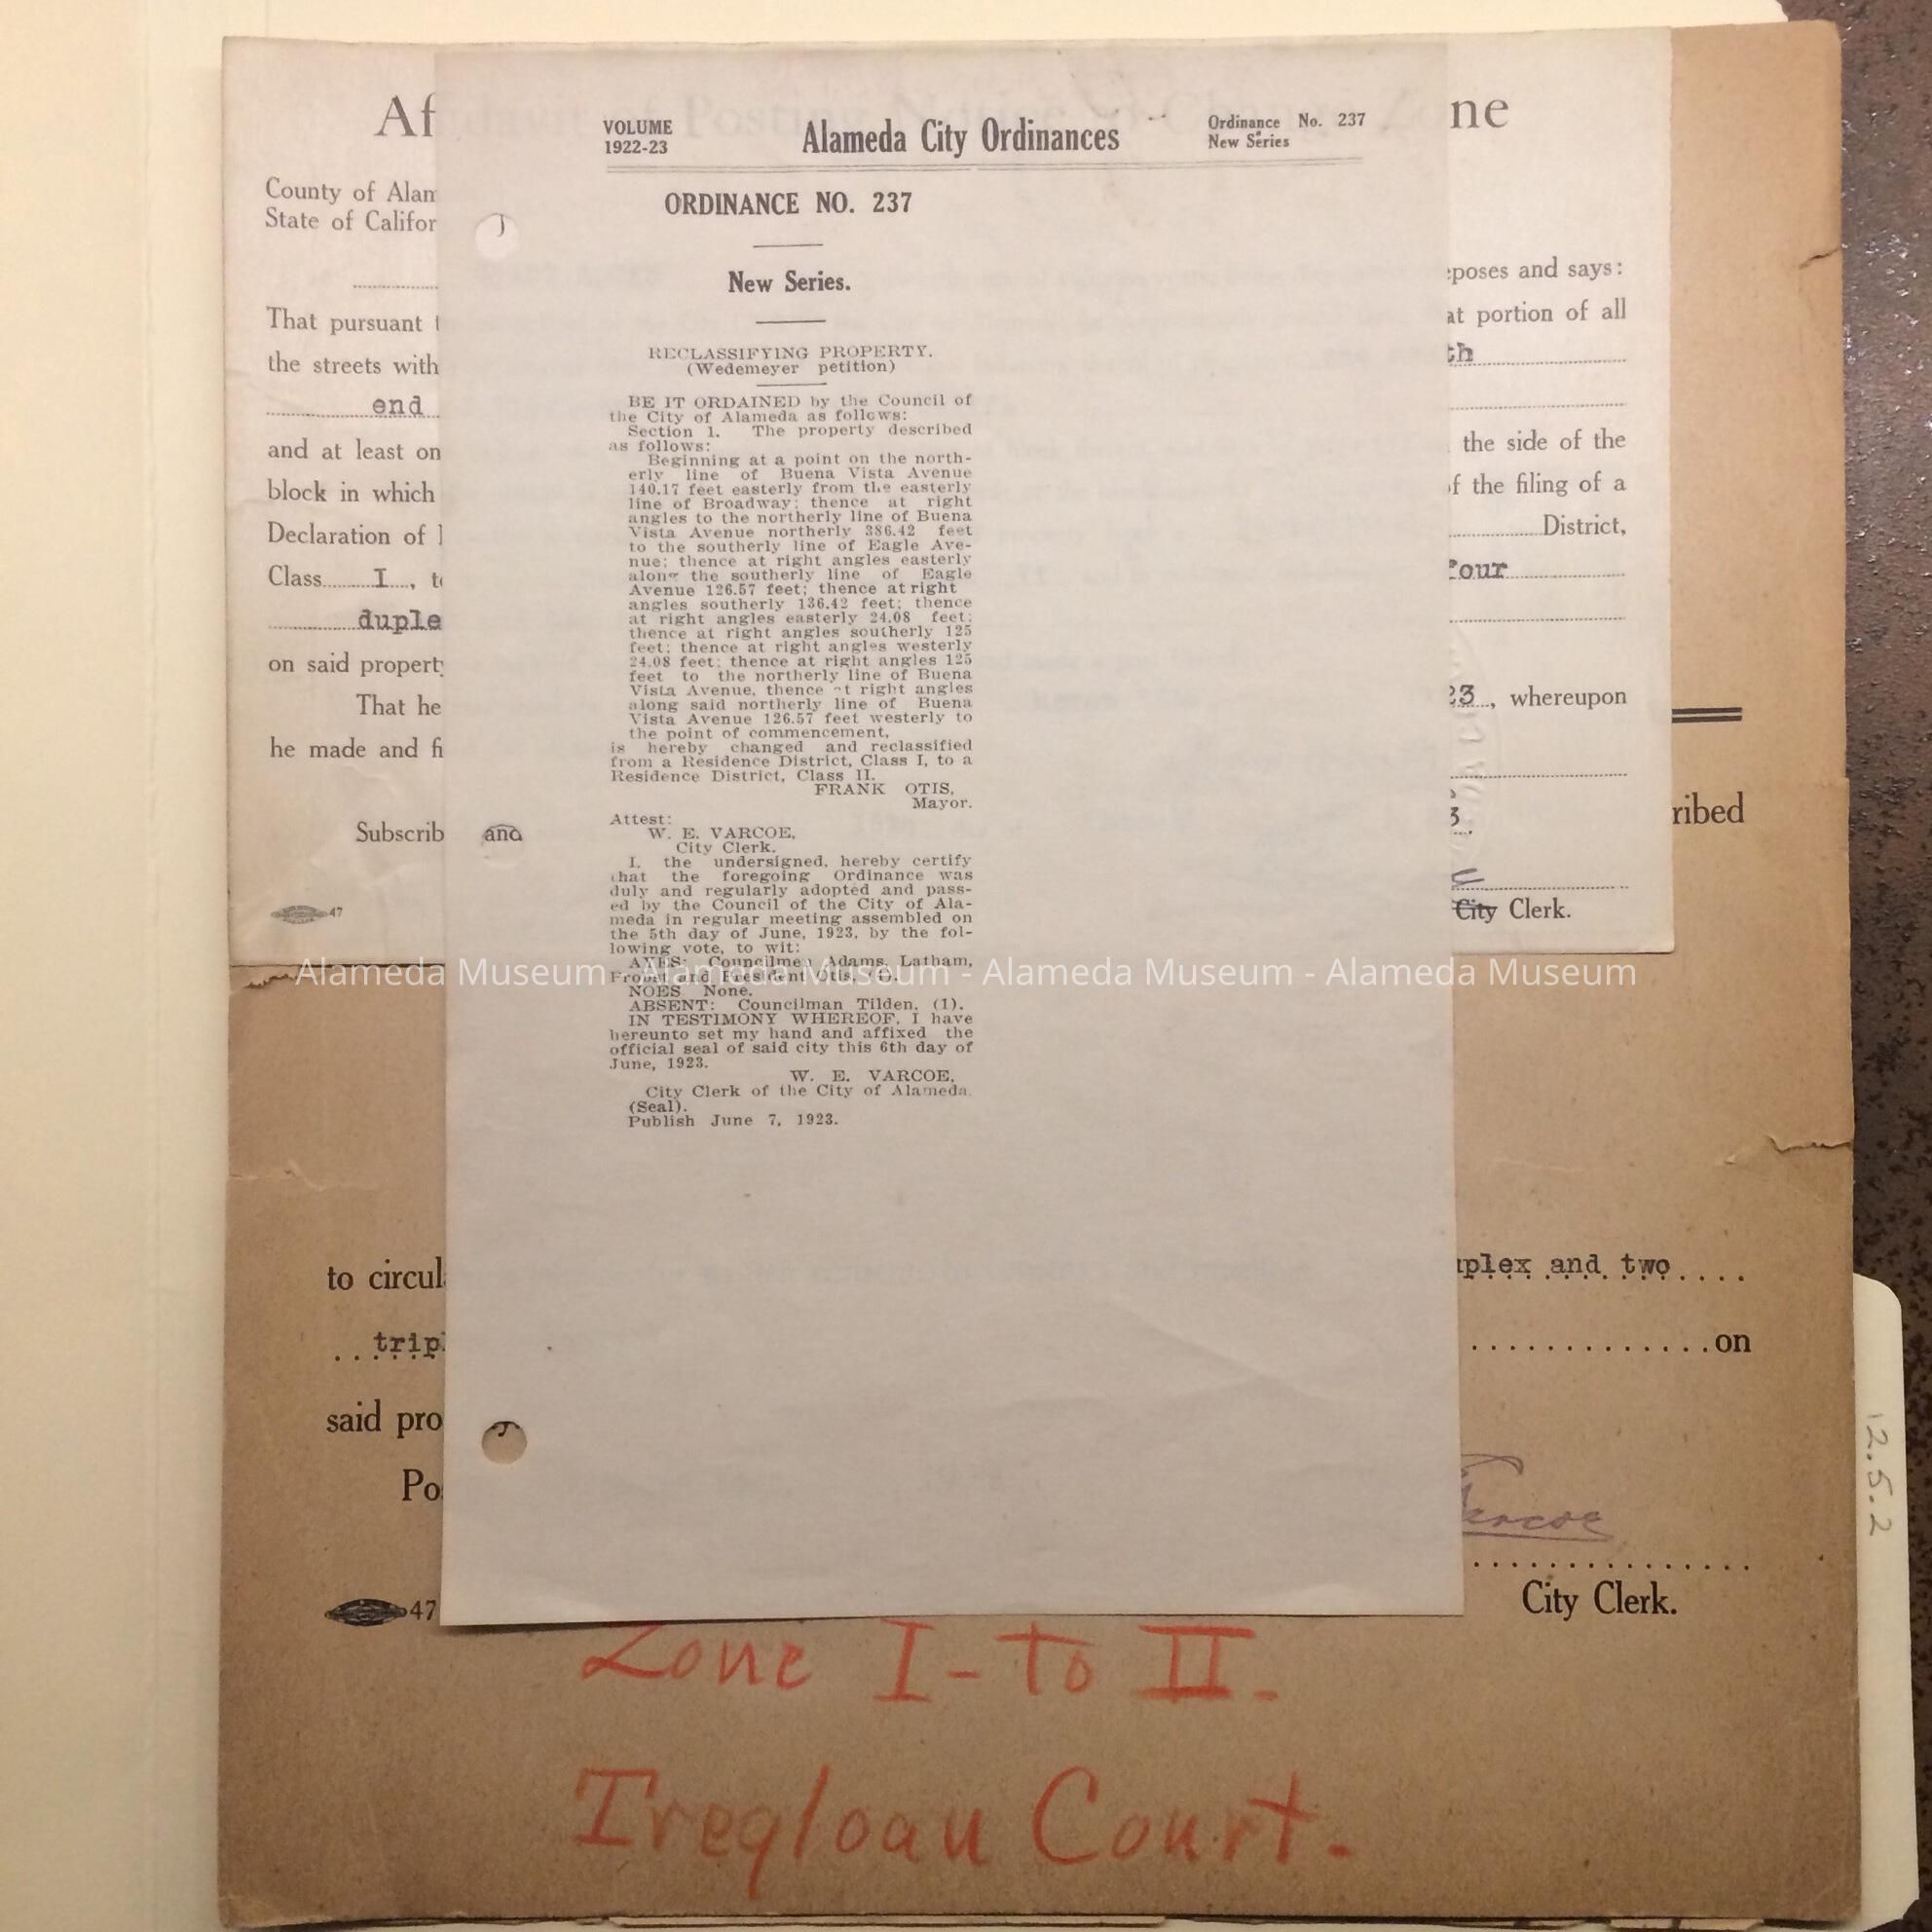 Af
ne
VOLUME
1922-23
Alameda City Ordinances
Ordinance No. 237
New Series
ORDINANCE NO. 237
New Series.
RECLASSIFYING PROPERTY.
(Wedemeyer petition)
BE IT ORDAINED by the Council of
the City of Alameda as follows:
Section 1. The property described
as follows:
Beginning at a point on the north-
erly line of Buena Vista Avenue
140.17 feet easterly from the easterly
line of Broadway; thence at right
angles to the northerly line of Buena
Vista Avenue northerly 386.42 feet
to the southerly line of Eagle Ave-
nue; thence at right angles easterly
along the southerly line of Eagle
Avenue 126.57 feet; thence at right
angles southerly 136.42 feet; thence
at right angles easterly 24.08 feet;
thence at right angles southerly 125
feet; thence at right angles westerly
24.08 feet; thence at right angles 125
feet to the northerly line of Buena
Vista Avenue, thence at right angles
along said northerly line of Buena
Vista Avenue 126.57 feet westerly to
the point of commencement,
is hereby changed and reclassified
from a Residence District, Class I, to a
Residence District, Class II.
FRANK OTIS,
Mayor.
Attest:
W. E. VARCOE,
City Clerk.
I, the undersigned, hereby certify
that the foregoing Ordinance was
duly and regularly adopted and pass-
ed by the Council of the City of Ala-
meda in regular meeting assembled on
the 5th day of June, 1923, by the fol-
lowing vote, to wit:
AYES: Councilmen Adams, Latham,
and President Otis, (4).
NOES None.
ABSENT: Councilman Tilden, (1).
IN TESTIMONY WHEREOF, I have
hereunto set my hand and affixed the
official seal of said city this 6th day of
June, 1923.
W. E. VARCOE,
City Clerk of the City of Alameda.
(Seal).
Publish June 7, 1923.
County of Alam
State of Califor
That pursuant t
the streets with
end
and at least on
block in which
Declaration of I
Class I, to
duple
on said property
That he
he made and fi
Subscrib and
47
eposes and says:
at portion of all
th
the side of the
of the filing of a
District,
Four
23, whereupon
3.
City Clerk.
ribed
Alameda Museum - Alameda Museum - Alameda Museum - Alameda Museum
to circul
uplex and two
tripl
on
said pro
Po
Varcoe
47
City Clerk.
Zone I - to II.
Tregloan Court.
12.5.2